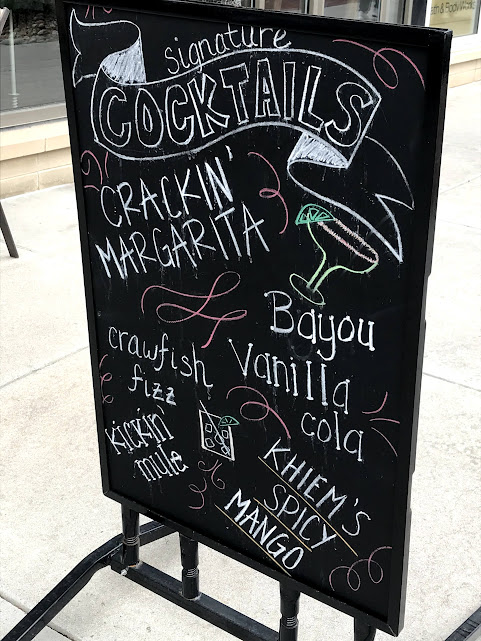 signature
COCKTAILS
CRACKIN'
MARGARITA
Bayou
Vanilla
cola
crawfish
fizz
kickin'
mule
KHIEM'S
SPICY
MANGO